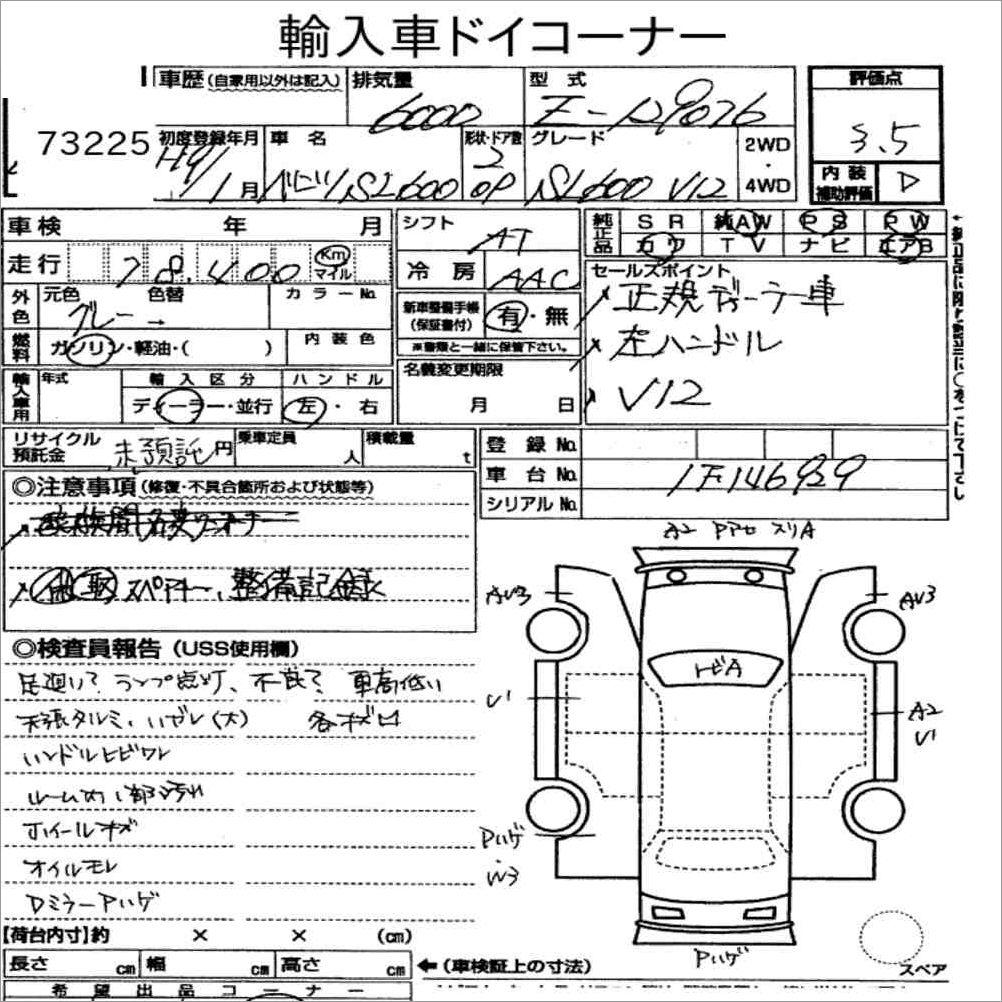 輸入車ドイコーナー
73225
車歴(自家用以外は記入)
排気量
6000
型式
E-129076
評価点
3.5
内装補助評価
D
初度登録年月
H9/
11月
車名
ベンツ SL600
形状・ドア数
2
OP
グレード
SL600 V12
2WD
・
4WD
車検 年 月
走行
78,400
Km
マイル
シフト
AT
冷房
AAC
純正品
SR 純AW PS PW
カワ TV ナビ エアB
外色
元色
グレー
色替
→
カラーNo.
燃料
ガソリン・軽油・( )
内装色
新車整備手帳
(保証書付)
有・無
※書類と一緒に保管下さい。
セールスポイント
正規ディーラー車
左ハンドル
V12
輸入車用
年式
輸入区分
ディーラー・並行
ハンドル
左・右
名義変更期限
月 日
リサイクル預託金
未預託円
乗車定員
人
積載量
t
登録No.
車台No.
1F146929
シリアルNo.
◎注意事項(修復・不具合箇所および状態等)
スペアキー、整備記録
◎検査員報告(USS使用欄)
足廻り? ランプ点灯、不良? 車高低い
天張タルミ、ハガレ(大) 各キズ
ハンドルヒビワレ
ルーム内1部汚れ
ホイールキズ
オイルモレ
DミラーPハゲ
A2 スリA
AV3
AV3
トビA
V1
A2
V1
Pハゲ
W3
Pハゲ
スペア
【荷台内寸】約 × × (cm)
長さ cm 幅 cm 高さ cm
←(車検証上の寸法)
希望出品コーナー